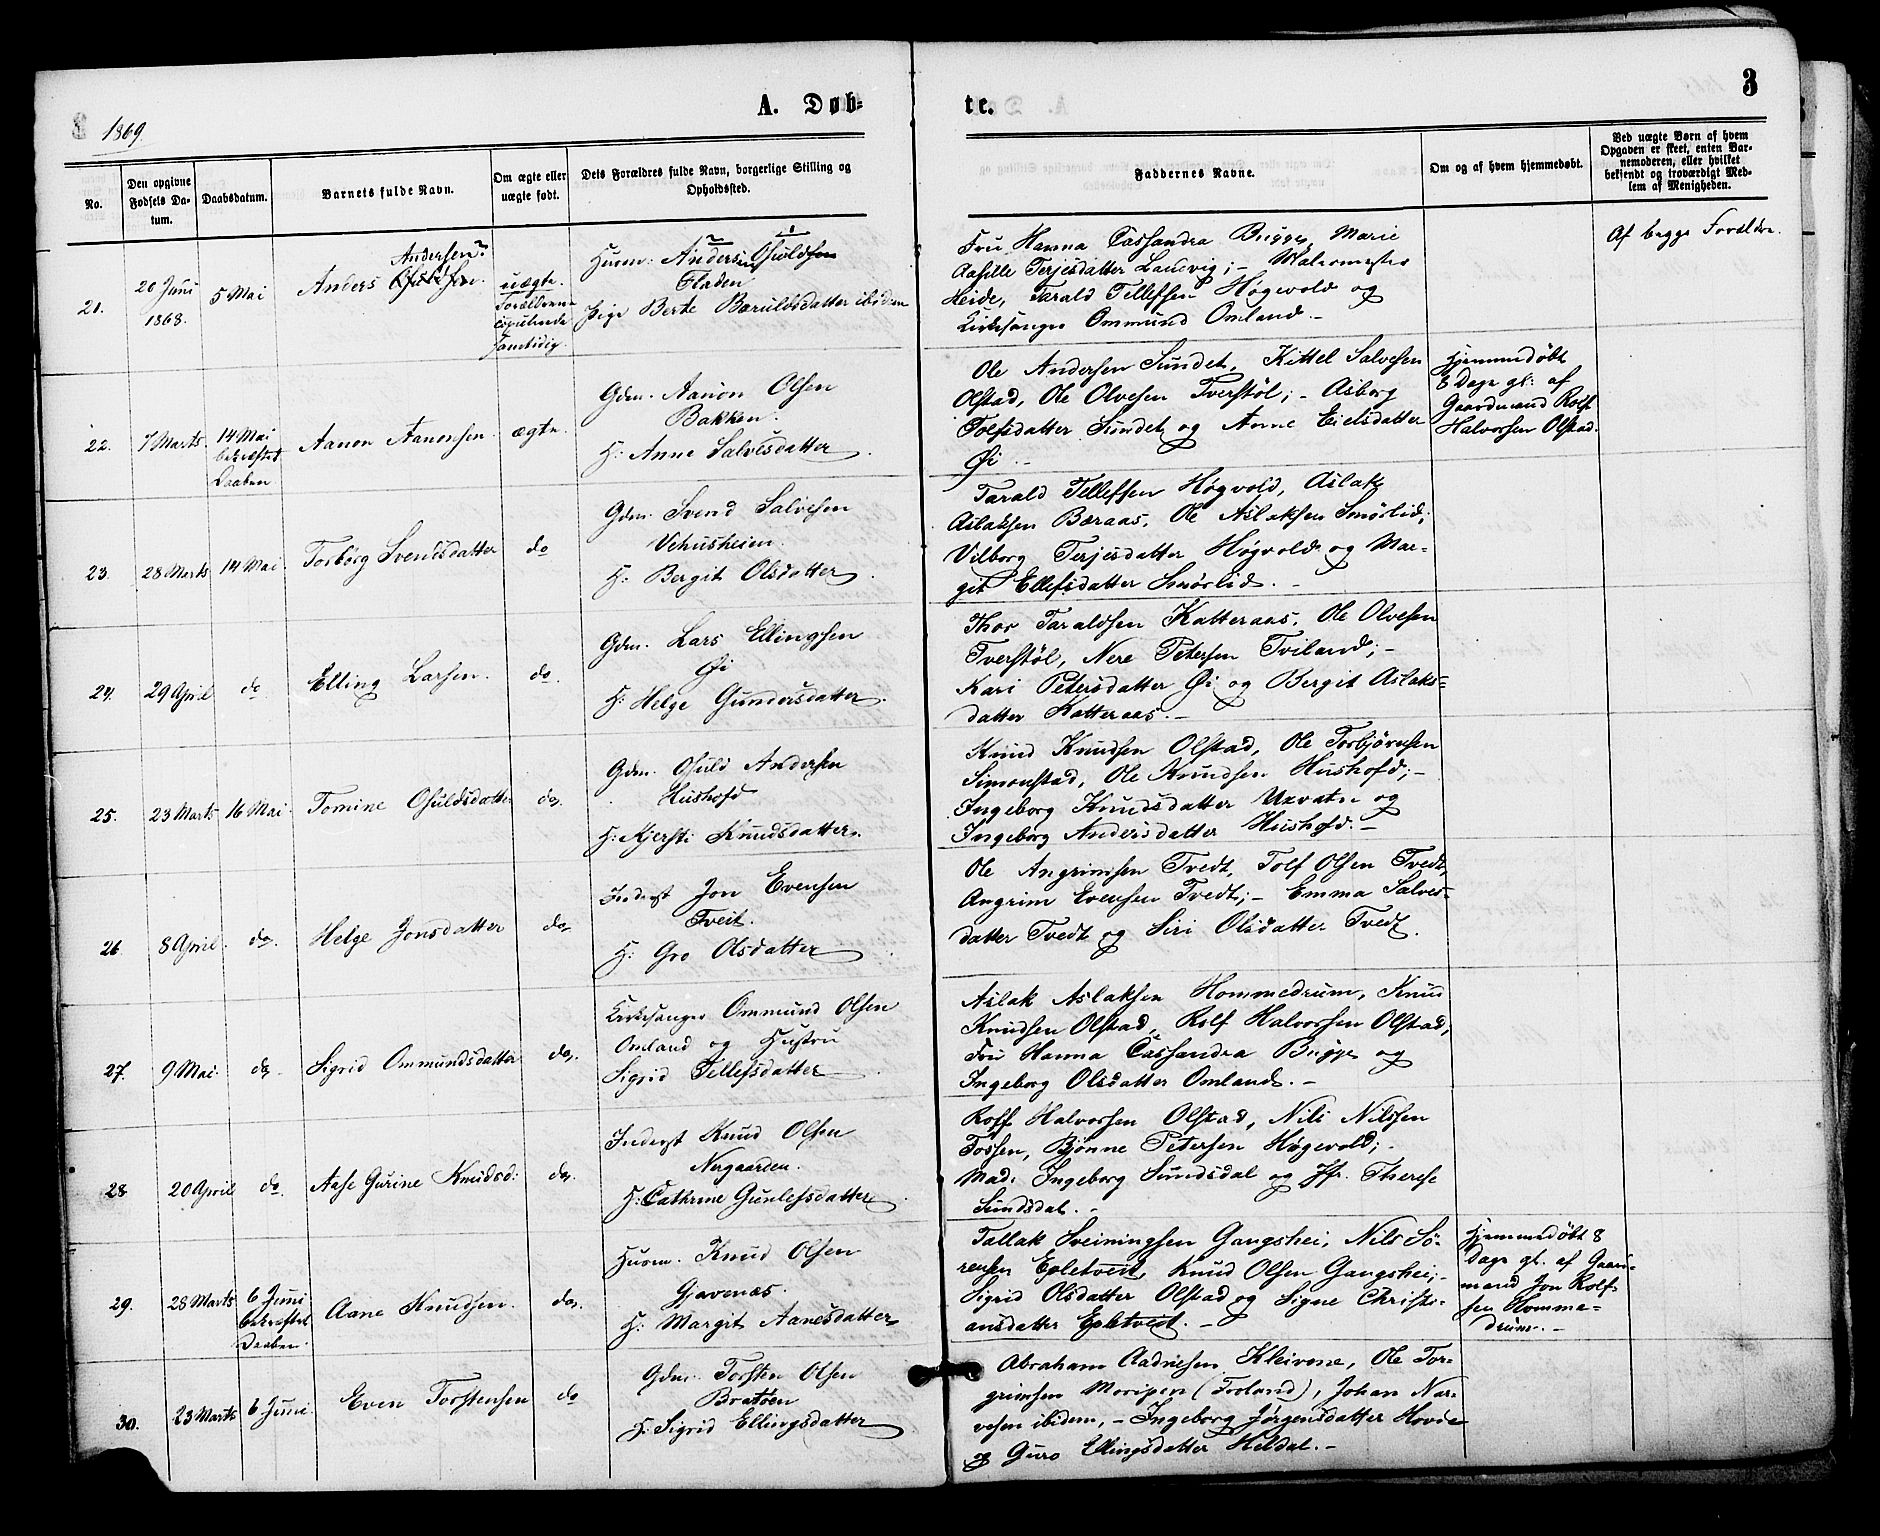 1869.
A. Døb-
te.
3
No.
Den opgivne Fødsels Da-
tum.
Daabsdatum.
Barnets fulde Navn.
Om ægte eller
uægte født.
Dets Forældres fulde Navn, borgerlige Stilling og
Opholdssted.
Faddernes Navne.
Om og af hvem hjemmedøbt.
Ved uægte Børn af hvem
Opgaven er skeet, enten Bar-
nemoderen, eller hvilket
bekjendt og troværdigt Med-
lem af Menigheden.
21.
20 Juni
1868.
5 Mai
Andersen
Anders
uægte.
Forældrene
Samtidig.
Husm. Anders Osuldsen
Fladen
Pige Berte Baruldsdatter ibidem
Fru Hanna Cassandra Bugge, Marie
Aasille Terjesdatter Laudvig; - Malermester
Heide, Tarald Tellefsen Høgevold og
Kirkesanger Ommund Omland. -
Af begge Forældre.
22.
7 Marts
14 Mai
bekræftet
Daaben
Aanon Aanonsen
ægte.
Gdm. Aanon Olsen
Bakken.
H: Anne Salvesdatter
Ole Andersen Sundet, Kittel Salvesen
Olstad, Ole Olvesen Tverstøl; - Asborg
Tolfsdatter Sundet og Anne Eielsdatter
Øi. -
Hjemmedøbt
8 Dage gl. af
Gaardmand Rolf
Halvorsen Olstad.
23.
28 Marts
14 Mai
Torbørg Svendsdatter
do
Gdm. Svend Salvesen
Vehusheien.
H: Bergit Olsdatter
Tarald Tellefsen Høgvold, Aslak
Aslaksen Bæraas, Ole Aslaksen Smørlid;
Vilborg Terjesdatter Høgvold og Mar-
git Ellefsdatter Smørlid. -
24.
29 April
do
Elling Larsen.
do.
Gdm. Lars Ellingsen
Øi
H: Helge Gundersdatter.
Thor Taraldsen Katteraas, Ole Olvesen
Tverstøl, Nere Petersen Tviland; -
Kari Petersdatter Øi og Bergit Aslaks-
datter Katteraas. -
25.
23 Marts
16 Mai
Tomine Osuldsdatter
do.
Gdm. Osuld Andersen
Hushofd
H: Kjersti Knudsdatter.
Knud Knudsen Olstad, Ole Torbjørnsen
Simonstad, Ole Knudsen Hushofd; -
Ingeborg Knudsdatter Uxvatne og
Ingeborg Andersdatter Hushofd. -
26.
8 April.
do.
Helge Jonsdatter
do.
Inderst Jon Evensen
Tveit.
H: Gro Olsdatter
Ole Angrimsen Tvedt, Tolf Olsen Tvedt,
Angrim Evensen Tvedt; - Emma Salves-
datter Tvedt og Siri Olsdatter Tvedt.
27.
9 Mai.
do.
Sigrid Ommundsdatter
do.
Kirkesanger Ommund Olsen
Omland og Hustru
Sigrid Tellefsdatter
Aslak Aslaksen Hommedrum, Knud
Knudsen Olstad, Rolf Halvorsen Olstad,
Fru Hanna Cassandra Bugge og
Ingeborg Olsdatter Omland. -
28
20 April
do.
Aase Gurine Knudsd:
do.
Inderst Knud Olsen
Nergaarden.
H: Cathrine Gunlefsdatter
Rolf Halvorsen Olstad, Nils Nilssen
Fossen, Bjønne Petersen Høgevold; -
Mad. Ingeborg Sundsdal og Jfr. Therese
Sundsdal. -
29.
28 Marts
6 Juni
bekræftet
Daaben.
Aane Knudsen.
do.
Husm. Knud Olsen
Gjavenæs.
H: Margit Aanesdatter
Tallak Sveiningsen Gangshei, Nils Sø-
rensen Epletveit, Knud Olsen Gangshei; -
Sigrid Olsdatter Olstad og Signe Christi-
ansdatter Epletveit. -
Hjemmedøbt 8
Dage gl. af Gaard-
mand Jon Rolf-
sen Homme-
drum. -
30.
23 Marts
6 Juni.
Even Torstensen
do
Gdm. Torsten Olsen
Bratøen
H: Sigrid Ellingsdatter
Abraham Aadnesen Kleivene, Ole Tor-
grimsen Moripen (Froland), Johan Nar-
vesen ibidem, - Ingeborg Jørgensdatter Hovde
og Guro Ellingsdatter Heldal. -